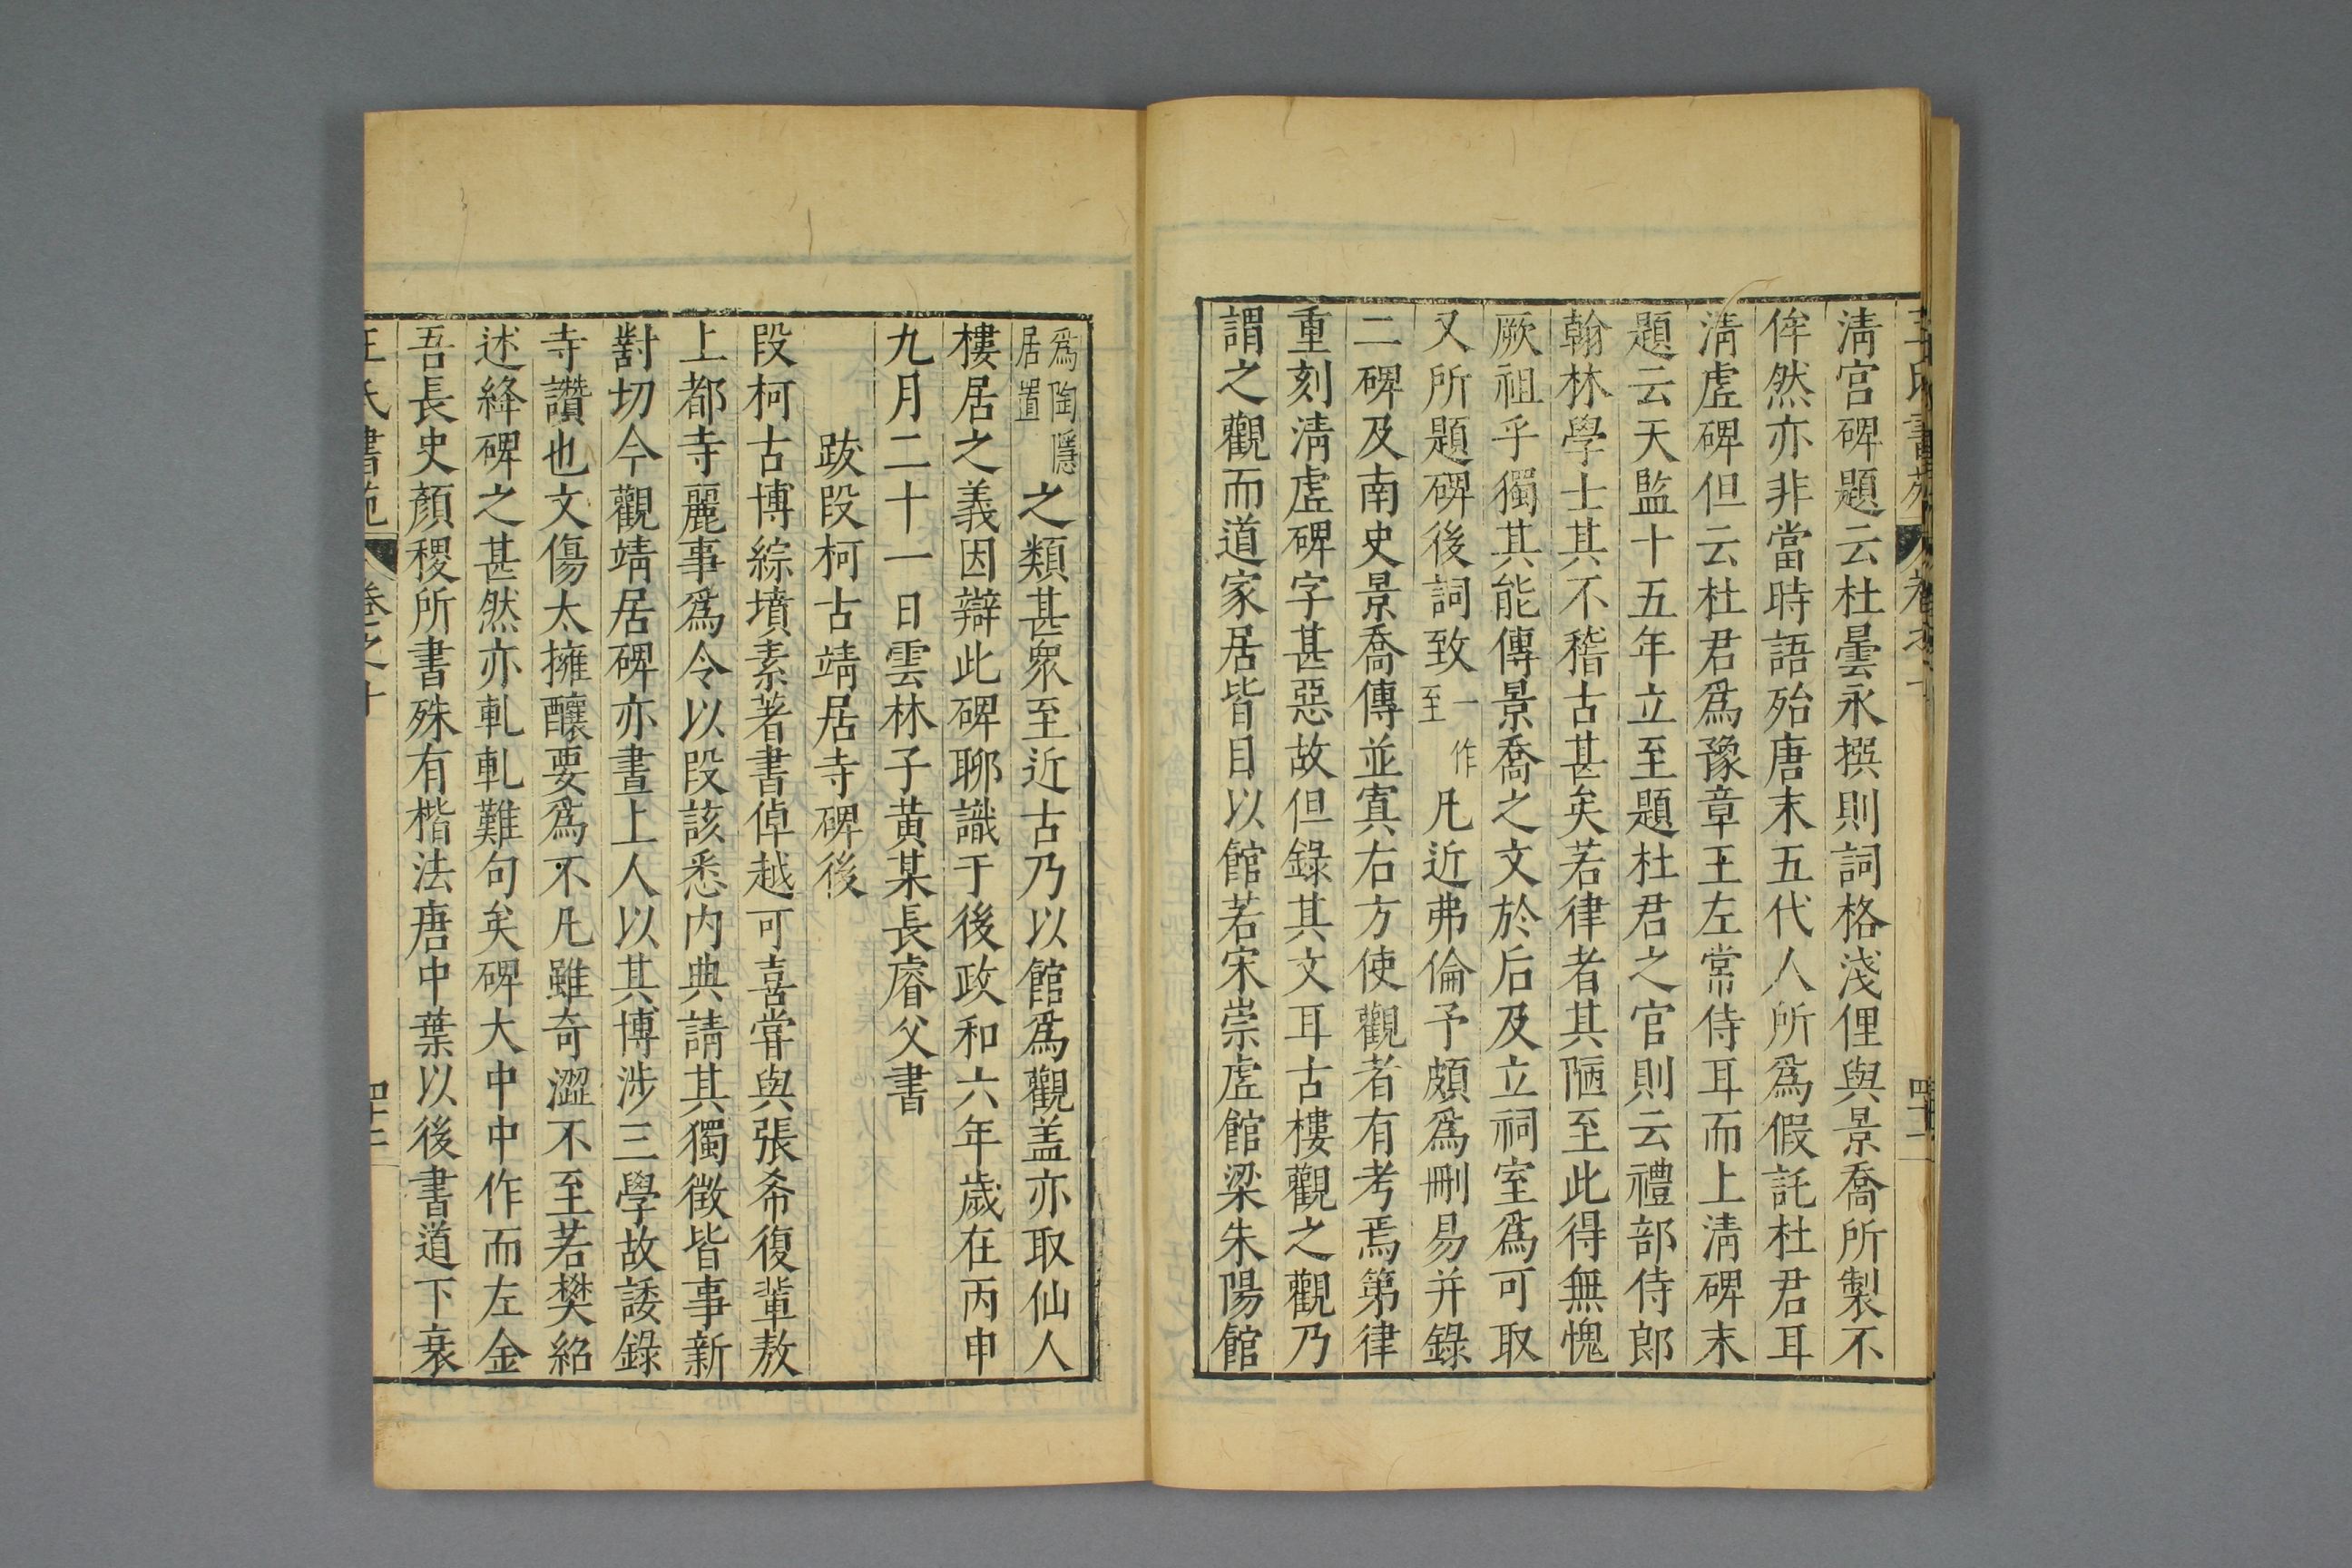 清宮碑題云杜曇永撰則詞格淺俚與景喬所製不
侔然亦非當時語殆唐末五代人所爲假託杜君耳
清虛碑但云杜君爲豫章王左常侍耳而上清碑末
題云天監十五年立至題杜君之官則云禮部侍郎
翰林學士其不稽古甚矣若律者其陋至此得無愧
厥祖乎獨其能傳景喬之文於后及立祠室爲可取
又所題碑後詞致一作至凡近弗倫予頗爲刪易并錄
二碑及南史景喬傳並寘右方使觀者有考焉第律
重刻清虛碑字甚惡故但錄其文耳古樓觀之觀乃
謂之觀而道家居皆目以館若宋崇虛館梁朱陽館
爲陶隱居置之類甚衆至近古乃以館爲觀盖亦取仙人
樓居之義因辯此碑聊識于後政和六年歲在丙申
九月二十一日雲林子黃某長睿父書
跋段柯古靖居寺碑後
段柯古博綜墳素著書倬越可喜甞與張希復輩敖
上都寺麗事爲令以段該悉内典請其獨徵皆事新
對切今觀靖居碑亦晝上人以其博涉三學故諉錄
寺讚也文傷太擁釀要爲不凡雖奇澀不至若樊紹
述絳碑之甚然亦軋軋難句矣碑大中中作而左金
吾長史顏稷所書殊有楷法唐中葉以後書道下衰
王氏書苑 卷之十